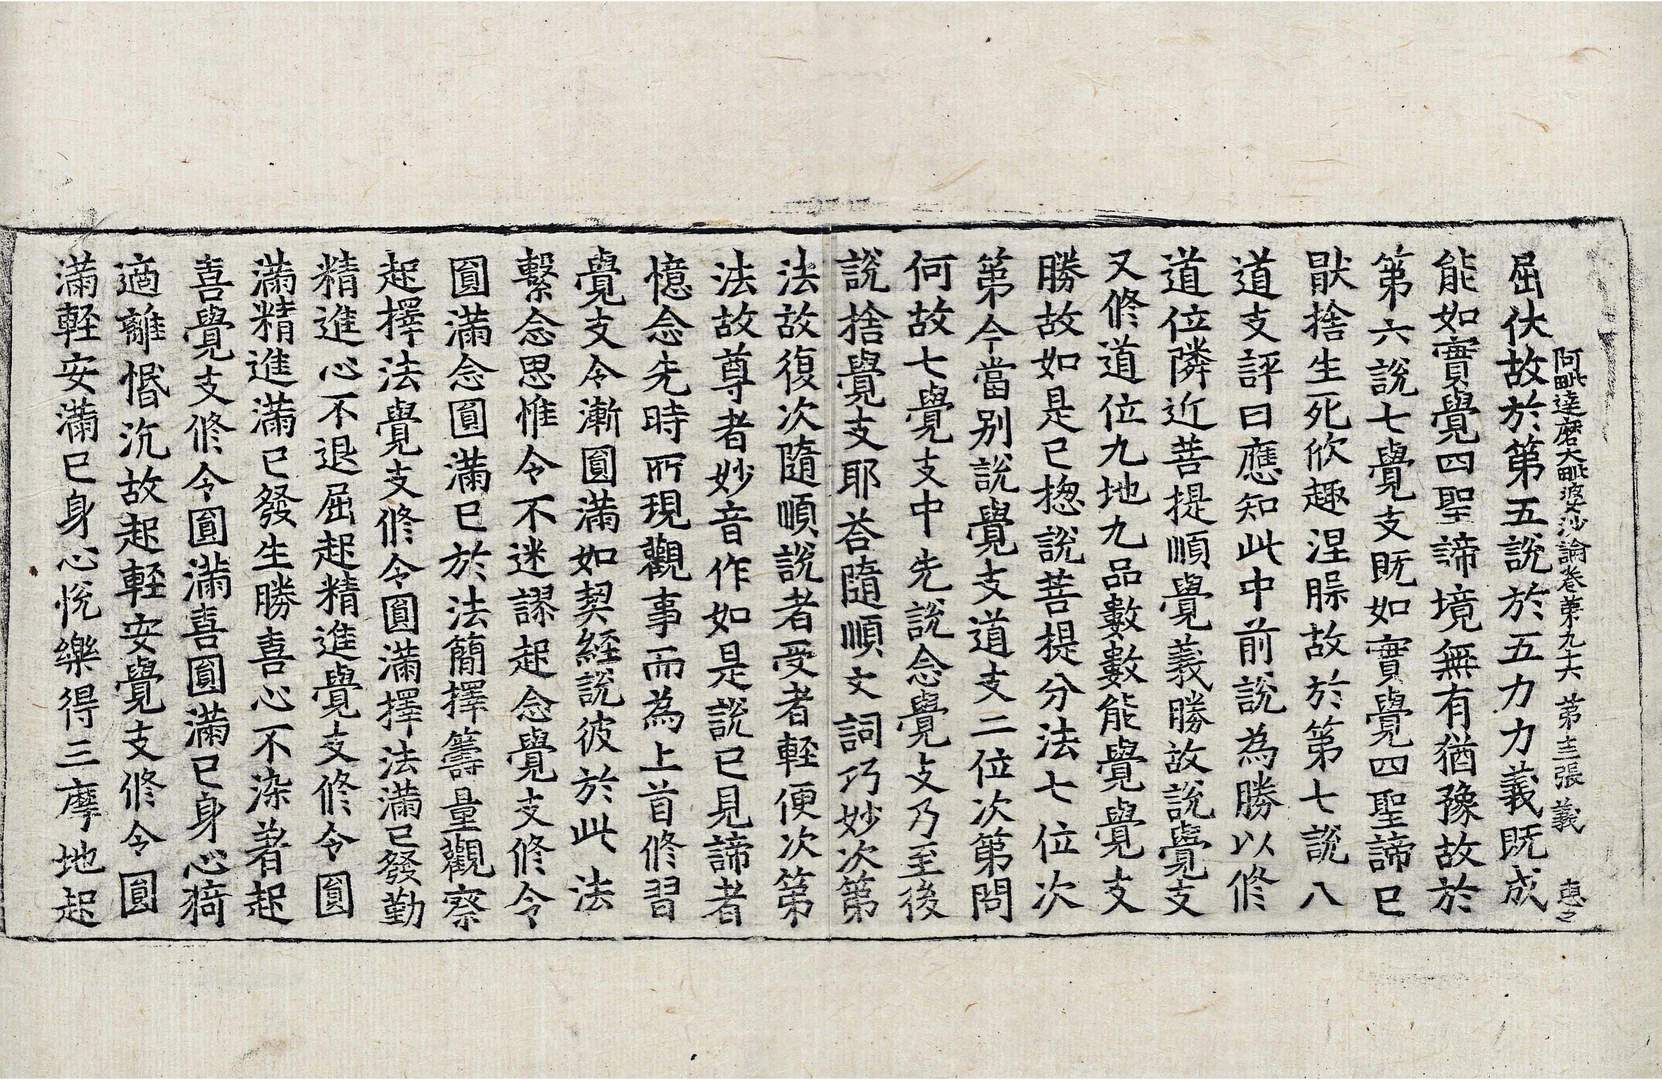 阿毗達磨大毗婆沙論卷第九十六 第十三張 義 惠之
屈伏故於第五說於五力力義既成
能如實覺四聖諦境無有猶豫故於
第六說七覺支既如實覺四聖諦已
猒捨生死欣趣涅槃故於第七說八
道支評曰應知此中前說為勝以修
道位隣近菩提順覺義勝故說覺支
又修道位九地九品數數能覺覺支
勝故如是已揔說菩提分法七位次
第今當別說覺支道支二位次第問
何故七覺支中先說念覺支乃至後
說捨覺支耶荅隨順文詞巧妙次第
法故復次隨順說者受者輕便次第
法故尊者妙音作如是說已見諦者
憶念先時所現觀事而為上首修習
覺支令漸圓滿如契經說彼於此法
繫念思惟令不迷謬起念覺支修令
圓滿念圓滿已於法簡擇籌量觀察
起擇法覺支修令圓滿擇法滿已發勤
精進心不退屈起精進覺支修令圓
滿精進滿已發生勝喜心不染著起
喜覺支修令圓滿喜圓滿已身心猗
適離惛沉故起輕安覺支修令圓
滿輕安滿已身心悅樂得三摩地起